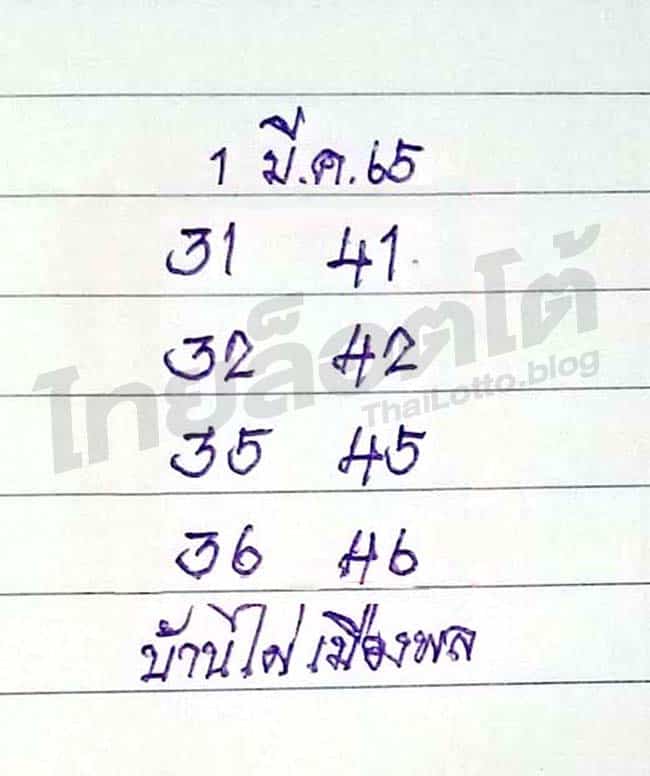 1 มี.ค.65
31 41
32 42
ไทยล็อตโต้
ThaiLotto.blog
35 45
36 46
บ้านไผ่ เมืองพล